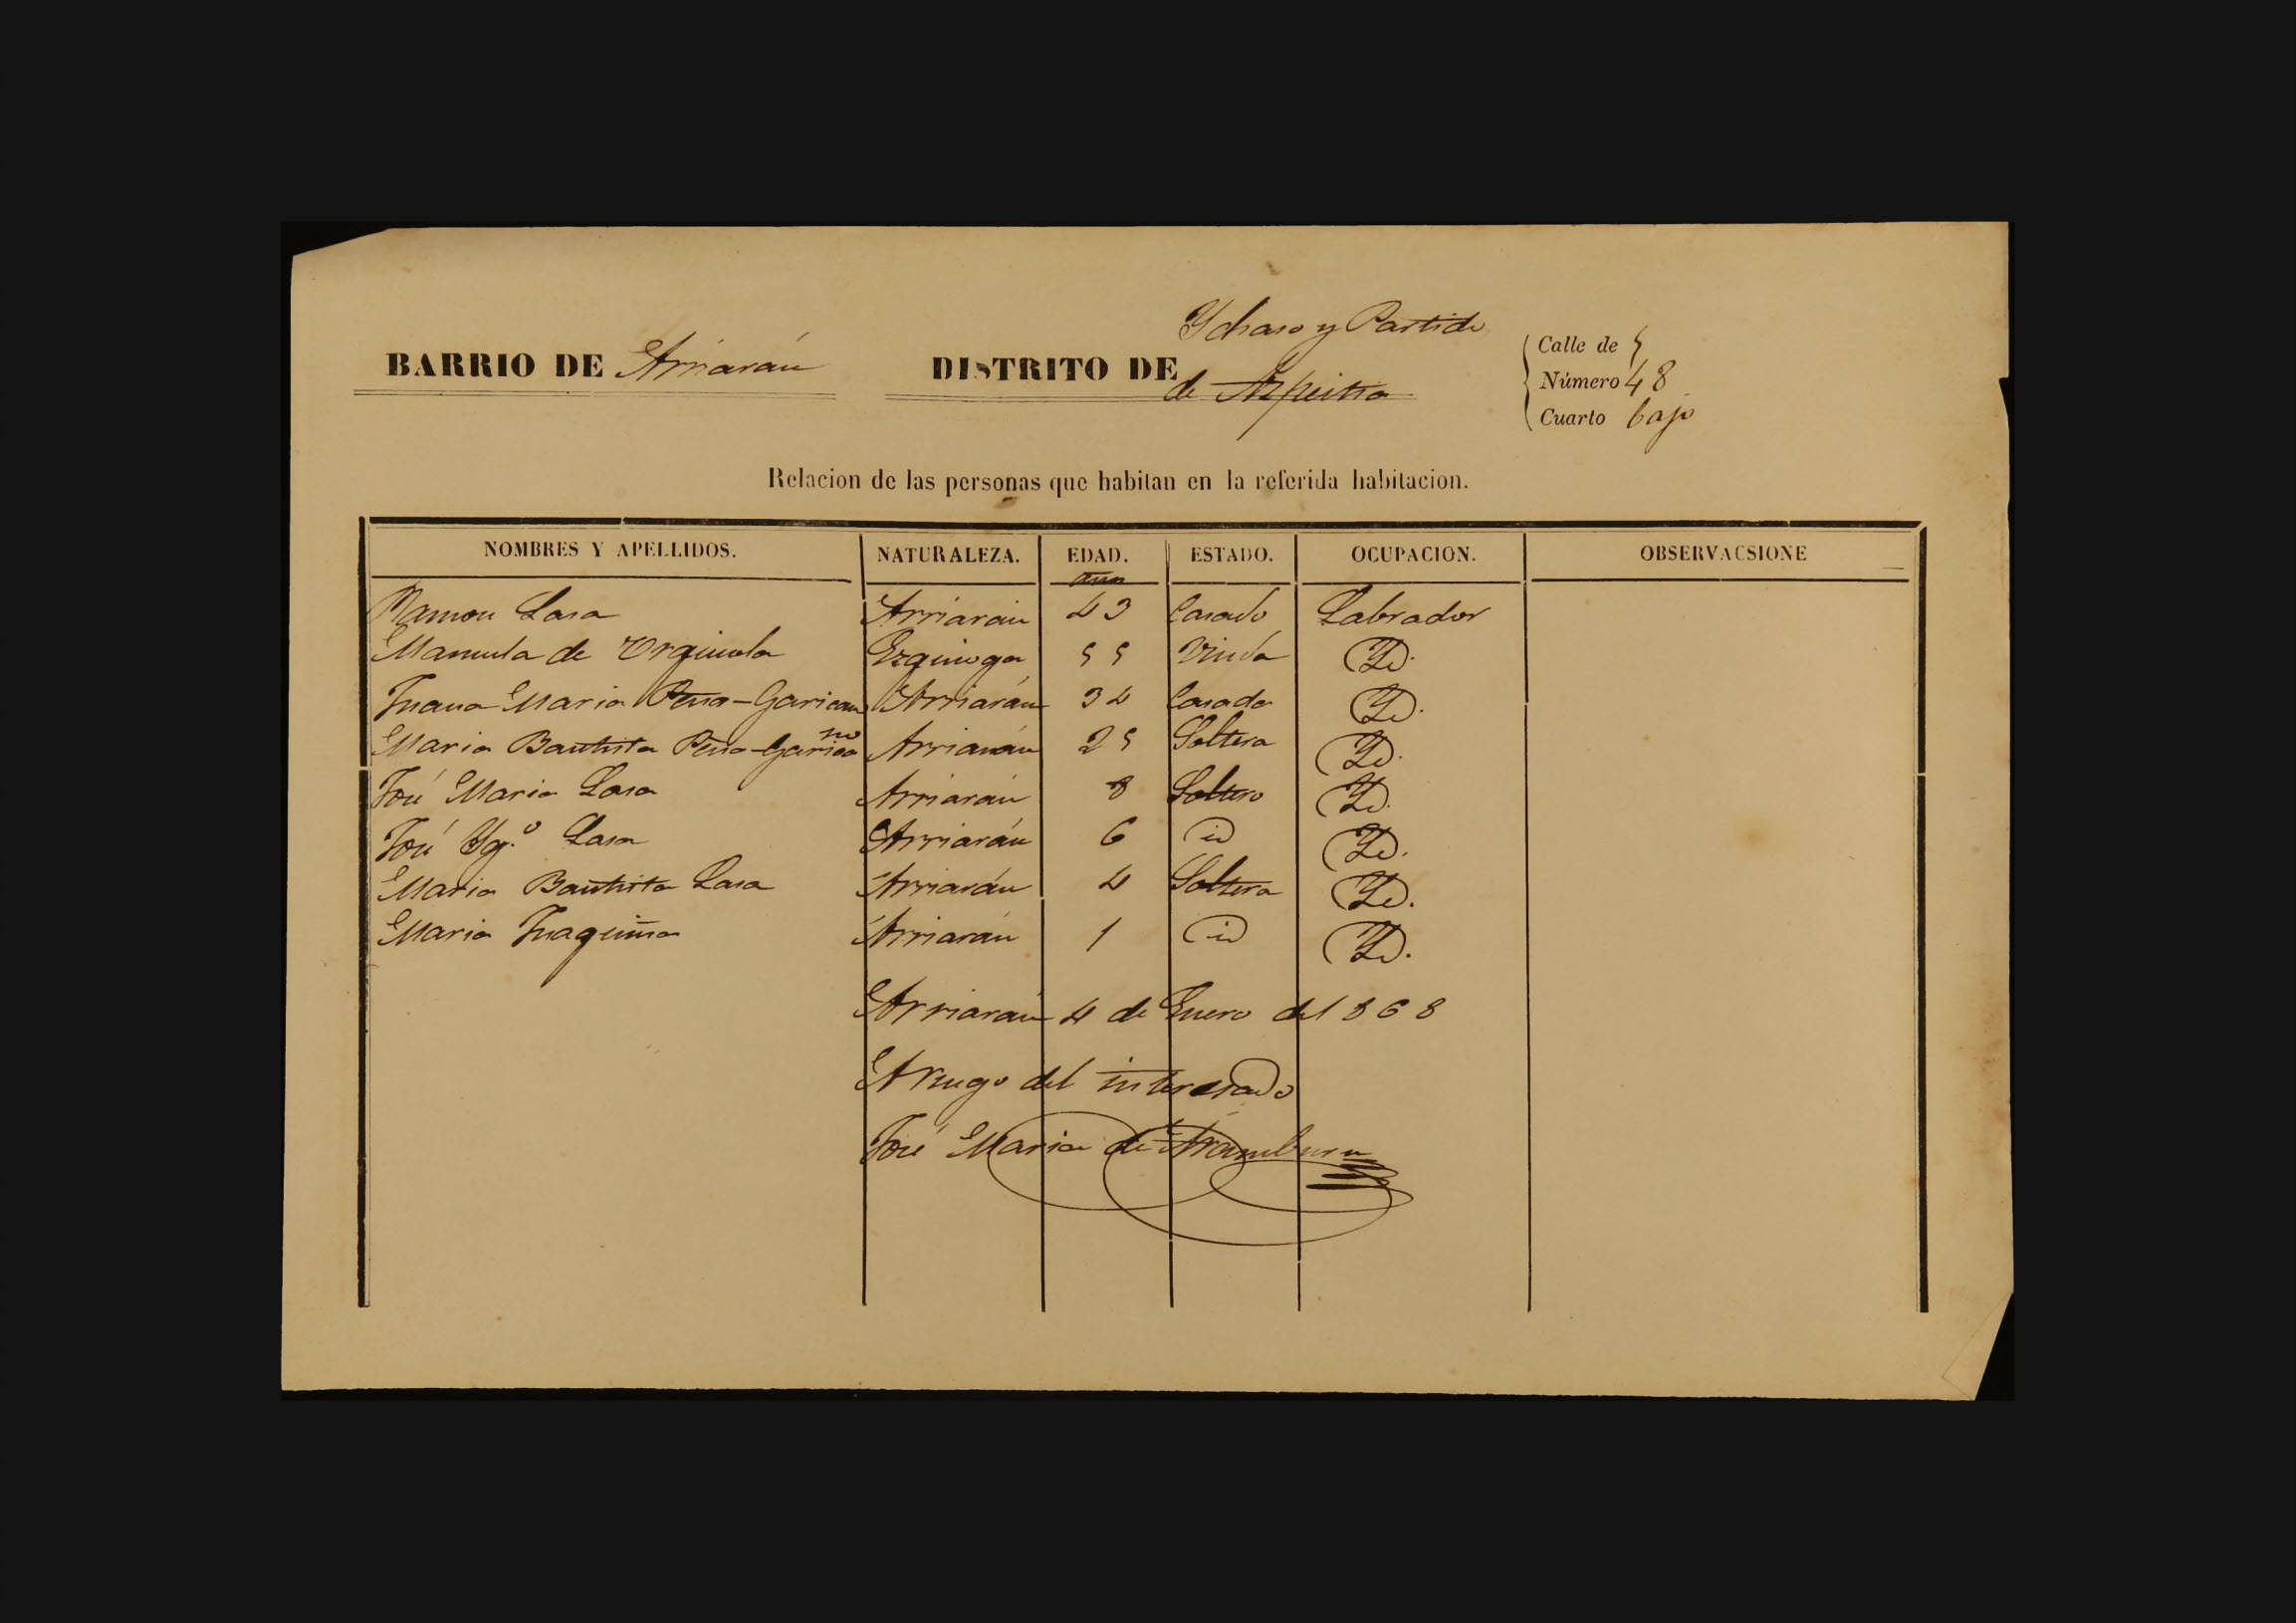 Ychaso y Partido
BARRIO DE Arriarán DISTRITO DE de Azpeitia
Calle de
Número 48
Cuarto bajo
Relacion de las personas que habitan en la referida habitacion.
NOMBRES Y APELLIDOS. NATURALEZA. EDAD. ESTADO. OCUPACION. OBSERVACSIONE
años
Ramon Lasa Arriarán 43 Casado Labrador
Manuela de Ezquioga 55 Viuda Yd.
Juana Maria Pena-Garicano Arriarán 34 Casada Yd.
Maria Bautista Pena-Garicano Arriarán 25 Soltera Yd.
José Maria Lasa Arriarán 8 Soltero Yd.
José Yg.º Lasa Arriarán 6 id Yd.
Maria Bautista Lasa Arriarán 4 Soltera Yd.
Maria Juaquina Arriarán 1 id Yd.
Arriarán 4 de Enero del 868
A ruego del interesado
José Maria de Aramburu